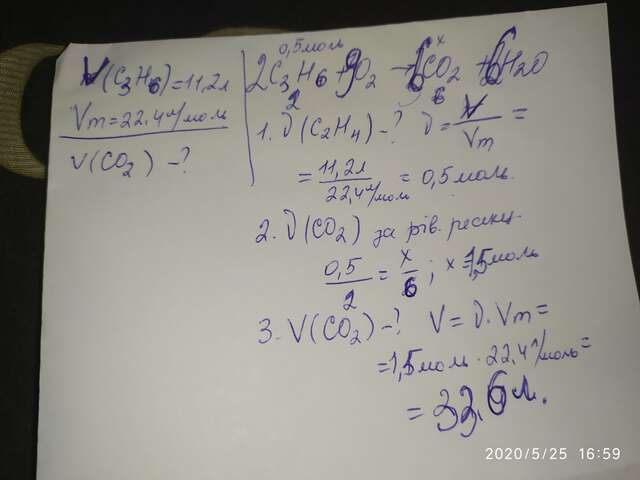 V(C3H6)=11,2л
Vm=22.4л/моль
V(CO2) -?
0,5моль x
2C3H6+9O2 → 6CO2 + 6H2O
2 6
1. ν(C2H4)-? ν=V/Vm =
= 11,2л/22,4л/моль = 0,5моль.
2. ν(CO2) за рів. реакц.
0,5/2 = x/6; x=1,5моль
3. V(CO2)-? V= ν·Vm=
=1,5моль·22.4л/моль=
= 33,6л.
2020/5/25 16:59